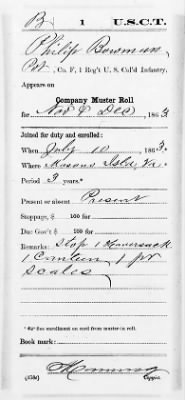 B 1 U.S.C.T.
Philip Bowman
Pvt, Co. F, 1 Reg't U. S. Col'd Infantry.
Appears on
Company Muster Roll
for Nov & Dec, 1863
Joined for duty and enrolled:
When July 10, 1863.
Where Masons Isld, Va.
Period 3 years.*
Present or absent Present
Stoppage, $ 100 for
Due Gov't $ 100 for
Remarks: Stop 1 Haversack
1 Canteen 1 pr
scales
*See enrollment on card from muster-in roll.
Book mark:
(358c) Copyist.